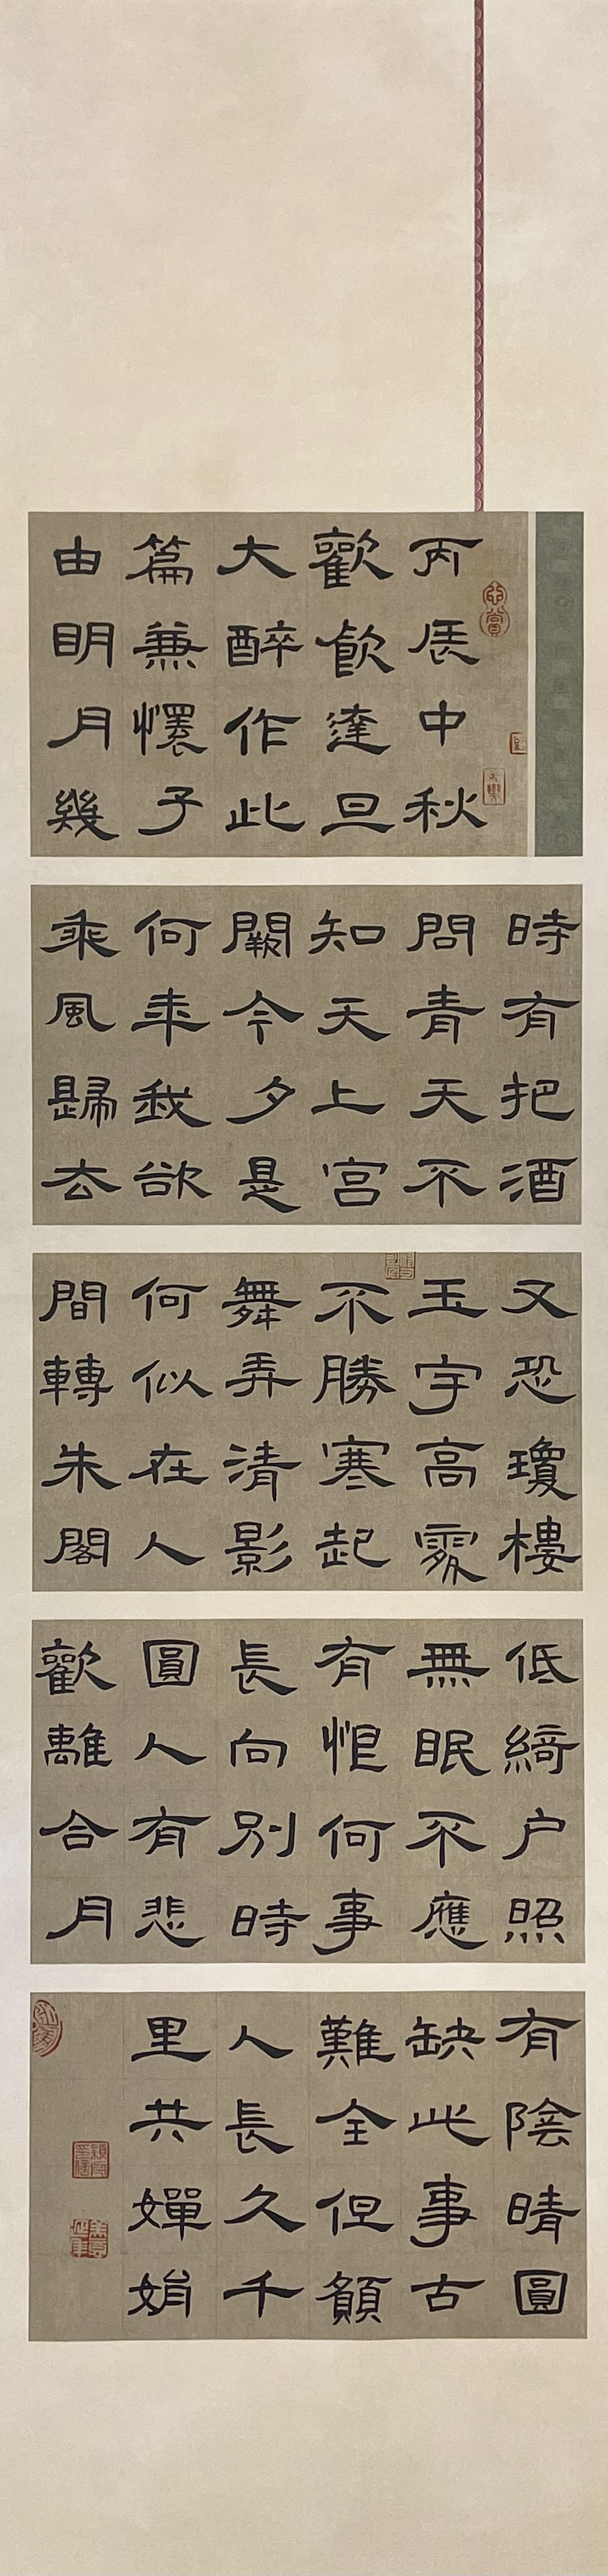 丙辰中秋
歡飲達旦
大醉作此
篇兼懷子
由明月幾
時有把酒
問青天不
知天上宮
闕今夕是
何年我欲
乘風歸去
又恐瓊樓
玉宇高處
不勝寒起
舞弄清影
何似在人
間轉朱閣
低綺户照
無眠不應
有恨何事
長向別時
圓人有悲
歡離合月
有陰晴圓
缺此事古
難全但願
人長久千
里共嬋娟